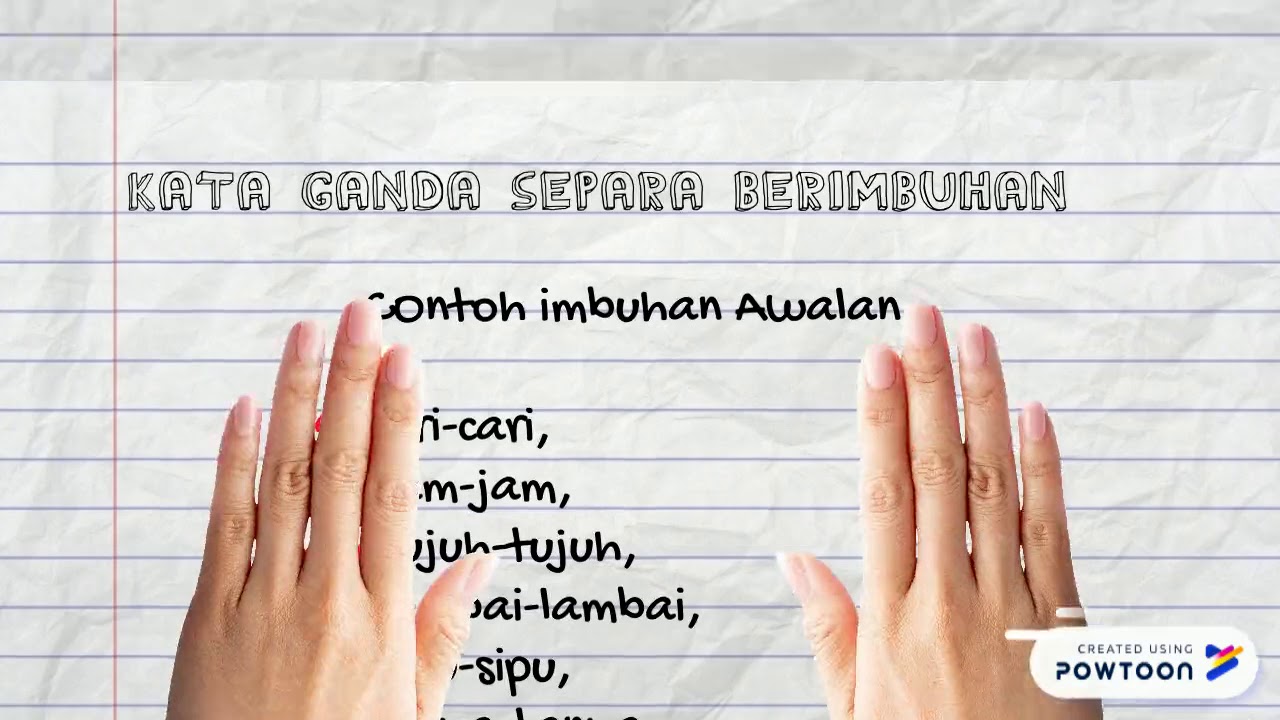 KATA GANDA SEPARA BERIMBUHAN
Contoh imbuhan Awalan
ri-cari,
m-jam,
ujuh-tujuh,
bai-lambai,
-sipu,
CREATED USING
POWTOON